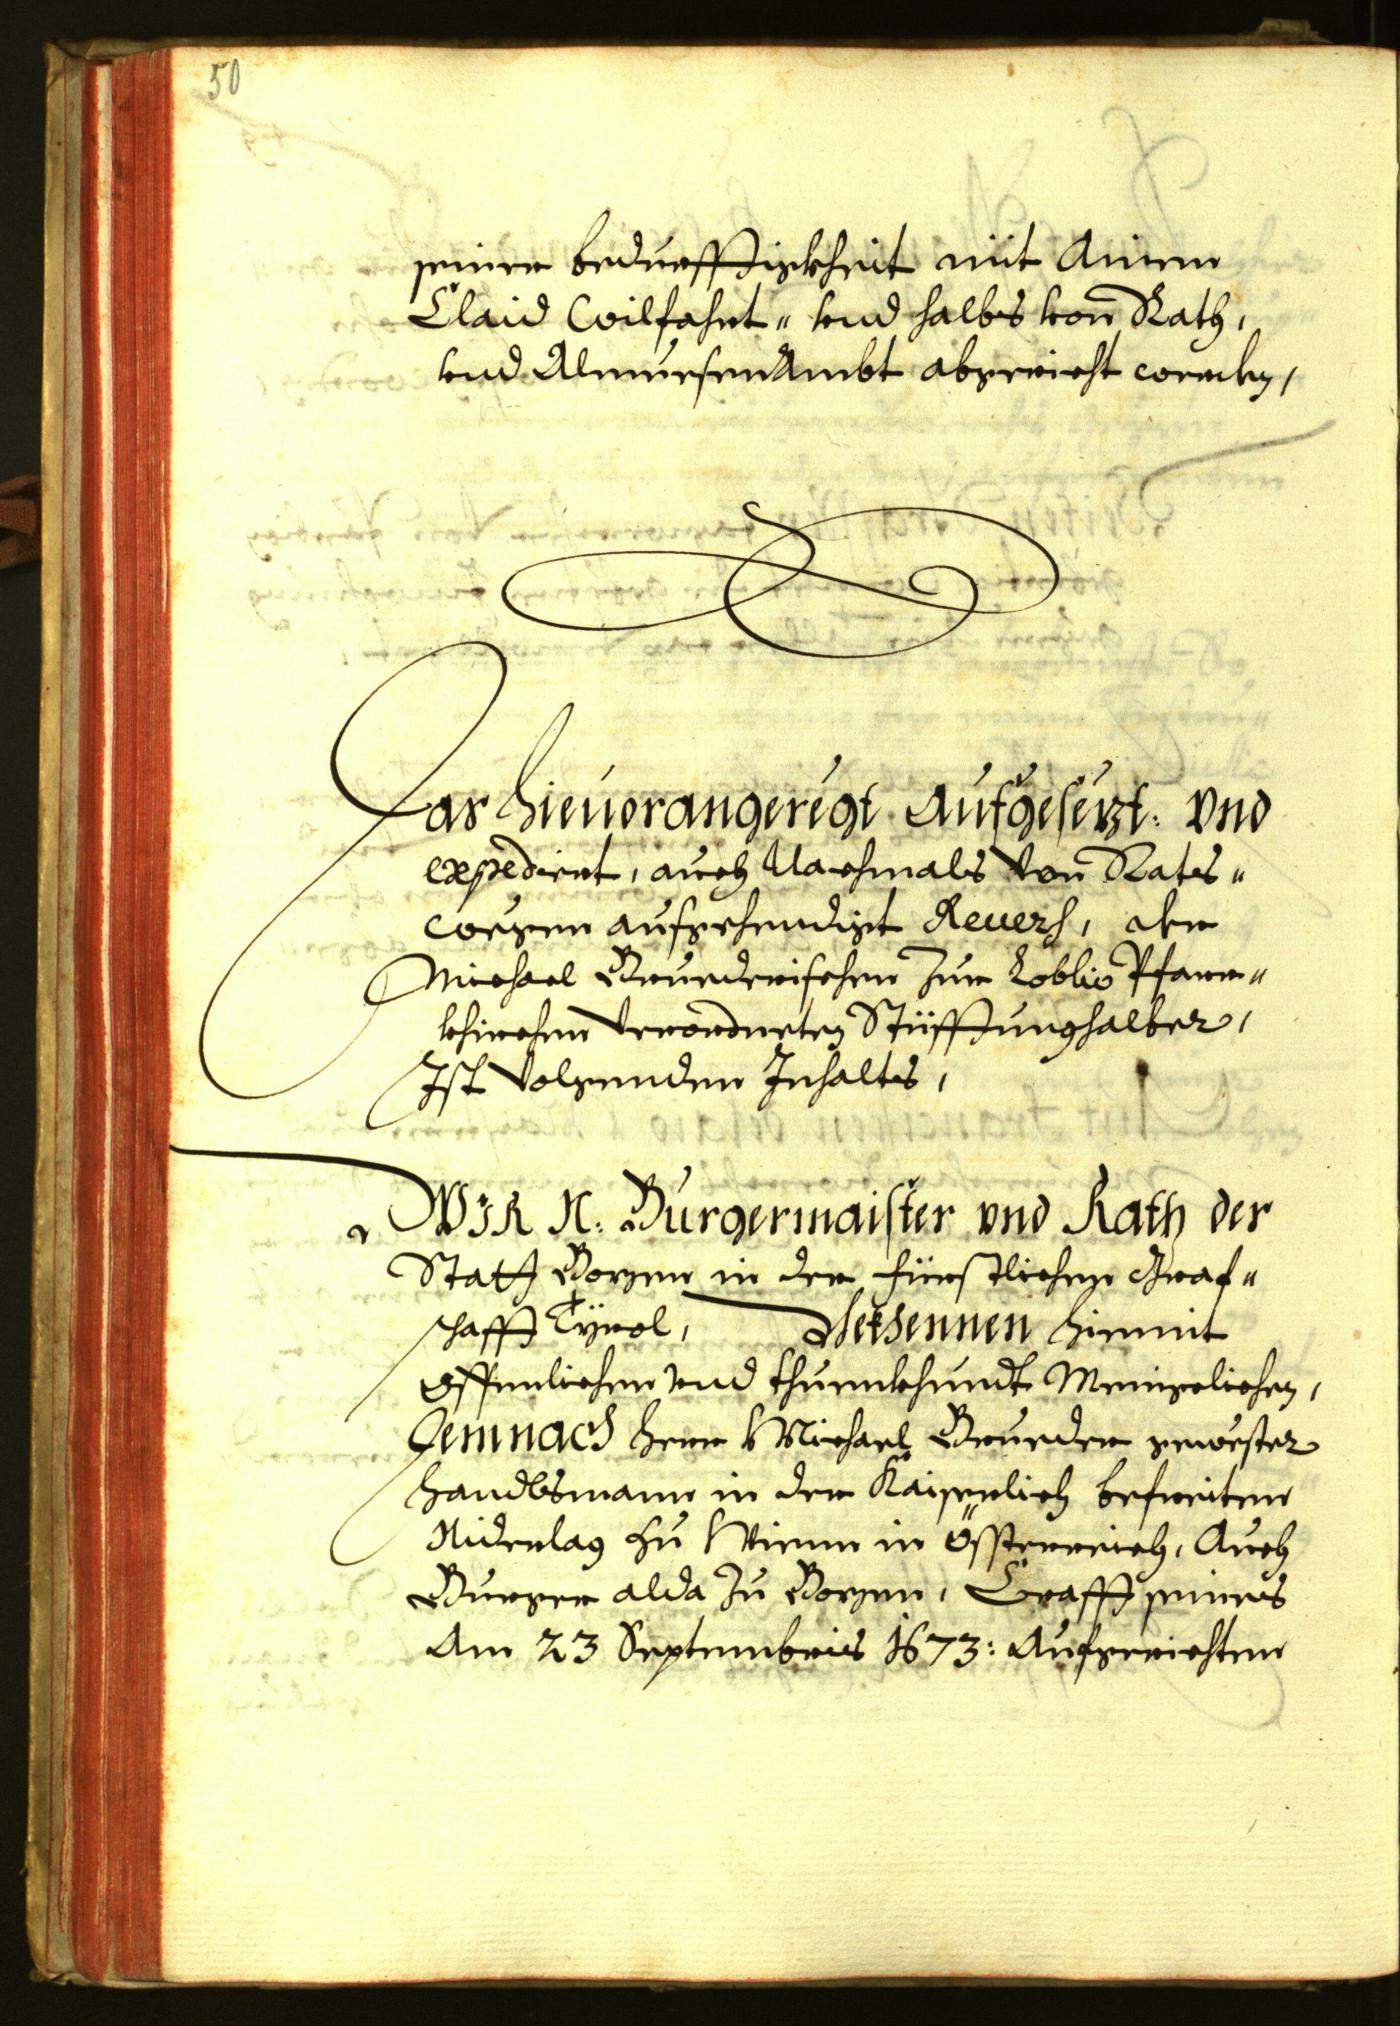 50
seiner bedürfftigkheit mit Ainem
Claid Wilfahrt" und halbs von Rath,
und Almuesen Ambt abgereicht werden,
Das hieuorangeregt Aufgesetzt: vnd
expediert, auch Nachmals von Rats"
wegen aufgehendigt Reuers, der
Michael Gruederischen zur Löblich Pfarr"
khirchen Verordneten Stüfftung halber,
Ist Volgenden Inhalts,
WIR N: Bürgermaister vnd Rath der
Statt Bozen in der fürstlichen Graf"
schafft Tÿrol, Bekhennen hiemit
offenlichen und thuen khundt Menigelichen,
Demnach herr Michael Grueder gewester
Handlsmann in der Kaiserlich befreiten
Niderlag zu Wienn in Össterreich, Auch
Burger alda zu Bozen, Crafft seines
Am 23 Septembris 1673: Aufgerichten